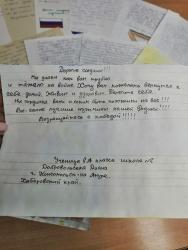 Дорогие солдаты!!!
Мы знаем как вам трудно
и тяжело на войне. Хочу вам пожелать вернуться к
себе домой, живыми и здоровыми. Берегите себя.
Мы гордимся вами и хотим быть похожими на вас!!!
Вы самые лучшие мужчины нашей Родины!
Возвращайтесь с победой!!!!!
Ученица 8А класса школы №
Добровольская
г. Комсомольск-на-Амуре,
Хабаровский край.